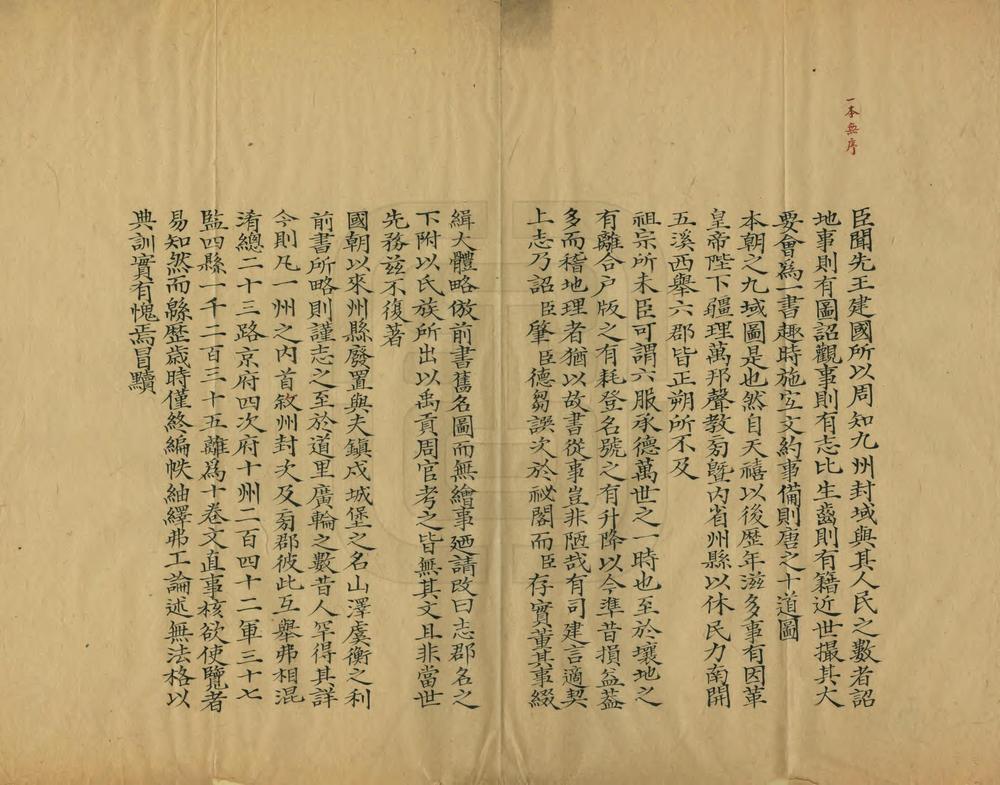 一本無序
臣聞先王建國所以周知九州封域與其人民之數者詔
地事則有圖詔觀事則有志比生齒則有籍近世撮其大
要會爲一書趣時施宜文約事備則唐之十道圖
本朝之九域圖是也然自天禧以後歷年滋多事有因革
皇帝陛下疆理萬邦聲教旁曁内省州縣以休民力南開
五溪西舉六郡皆正朔所不及
祖宗所未臣可謂六服承德萬世之一時也至於壤地之
有離合户版之有耗登名號之有升降以今準昔損益葢
多而稽地理者猶以故書從事豈非陋哉有司建言適契
上志乃詔臣肇臣德芻誤次於祕閣而臣存實董其事綴
緝大體略倣前書舊名圖而無繪事廼請改曰志郡名之
下附以氏族所出以禹貢周官考之皆無其文且非當世
先務兹不復著
國朝以來州縣廢置與夫鎮戍城堡之名山澤虞衡之利
前書所略則謹志之至於道里廣輪之數昔人罕得其詳
今則凡一州之内首敘州封次及旁郡彼此互舉弗相混
淆總二十三路京府四次府十州二百四十二軍三十七
監四縣一千二百三十五離爲十卷文直事核欲使覽者
易知然而緜歷歲時僅終編帙紬繹弗工論述無法格以
典訓實有愧焉冒黷